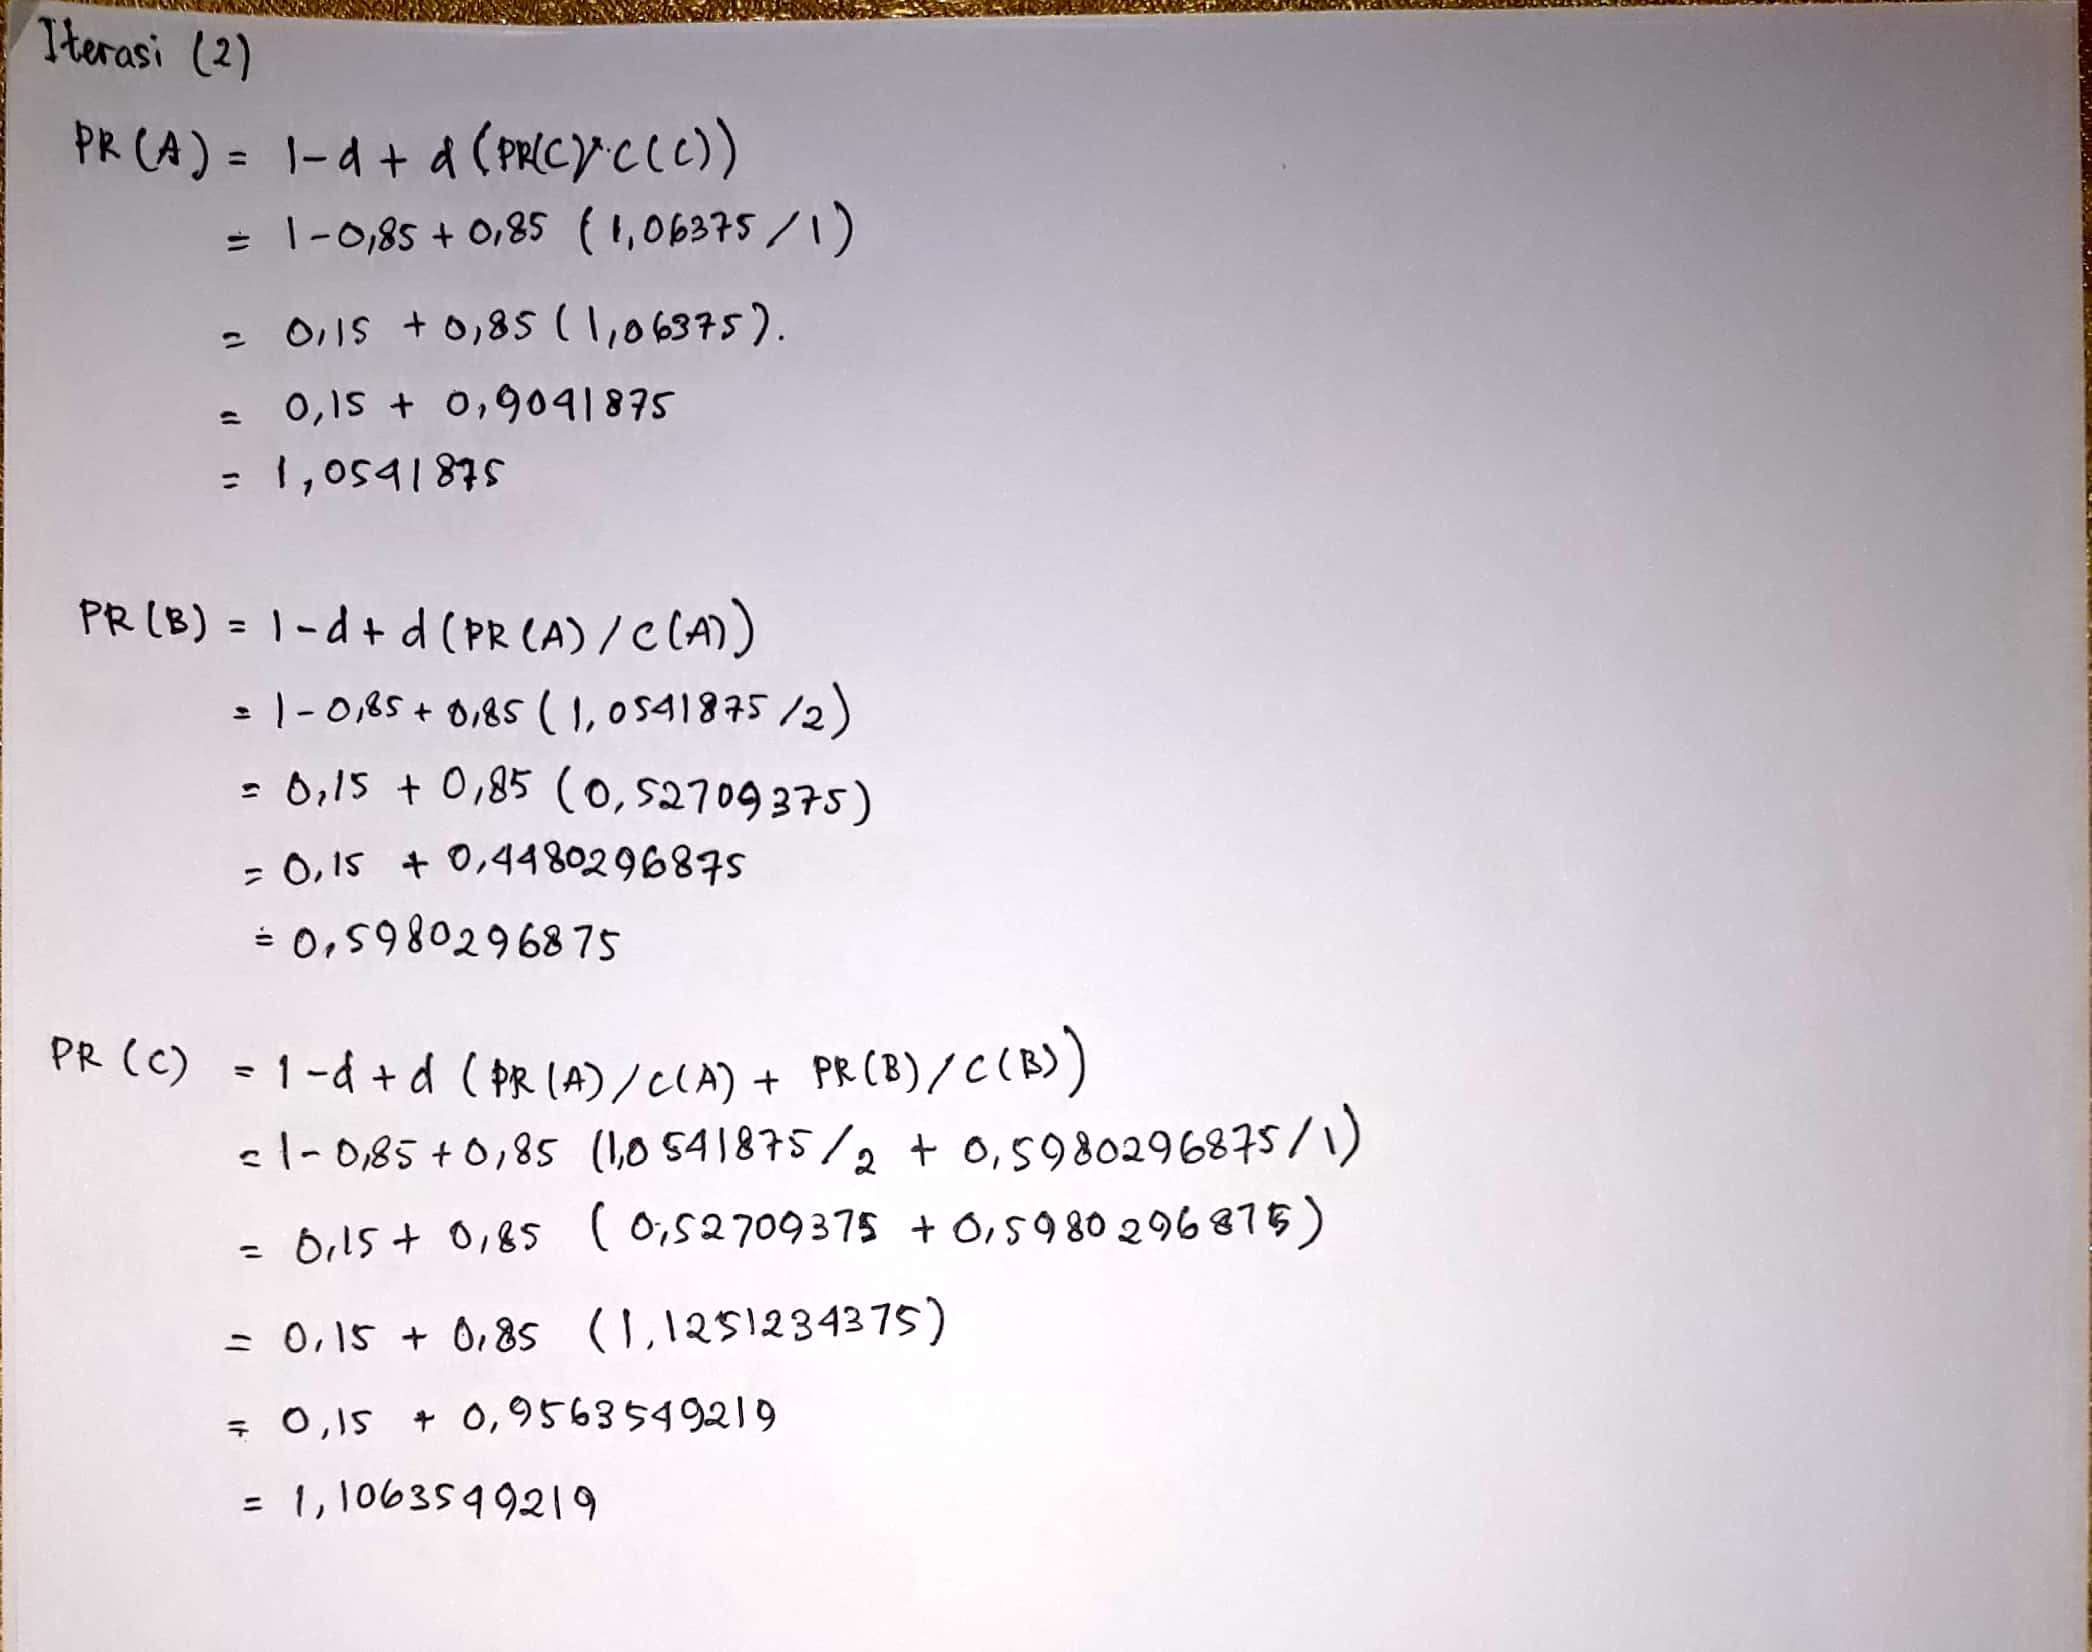 Iterasi (2)
PR (A) = 1-d + d (PR(C)/C(C))
= 1-0,85 + 0,85 (1,06375/1)
= 0,15 + 0,85 (1,06375).
= 0,15 + 0,9041875
= 1,0541875
PR (B) = 1-d + d (PR (A) / C(A))
= 1-0,85 + 0,85 (1,0541875/2)
= 0,15 + 0,85 (0,52709375)
= 0,15 + 0,4480296875
= 0,5980296875
PR (C) = 1-d + d (PR (A) / C(A) + PR (B) / C(B))
= 1-0,85 + 0,85 (1,0541875/2 + 0,5980296875/1)
= 0,15 + 0,85 (0,52709375 + 0,5980296875)
= 0,15 + 0,85 (1,1251234375)
= 0,15 + 0,9563549219
= 1,1063549219